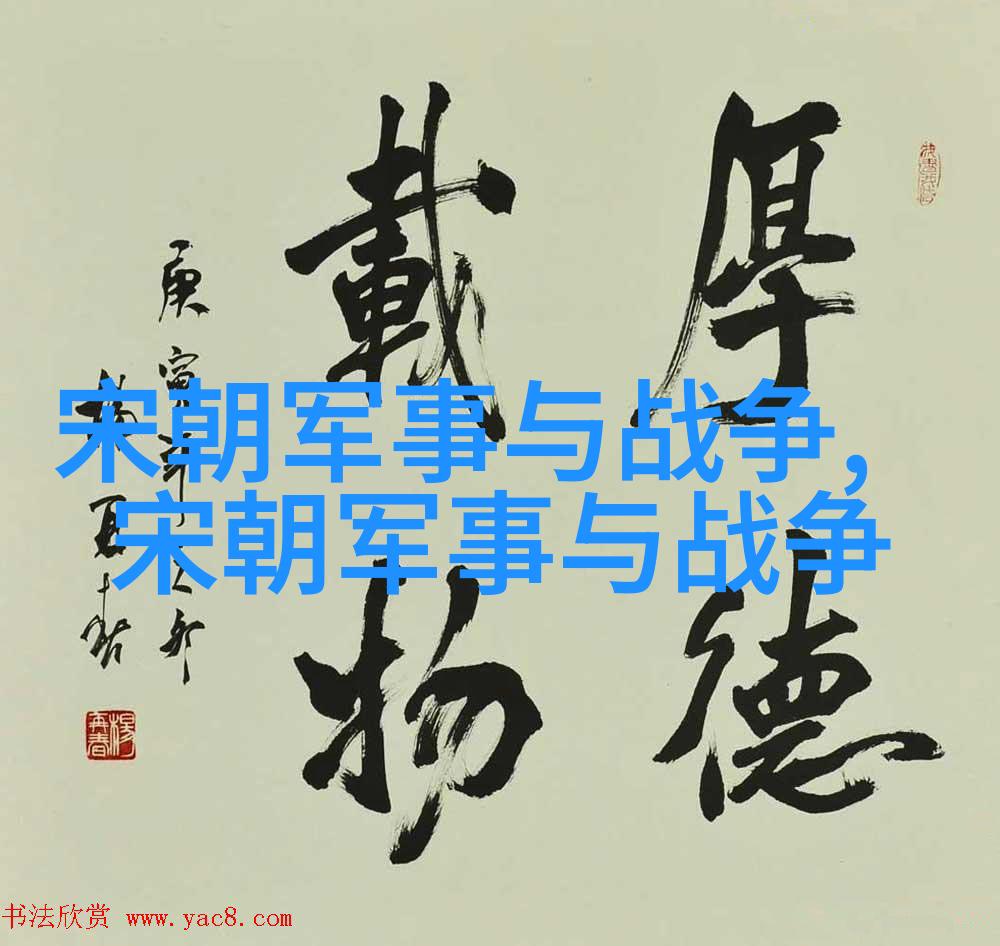 厚德
載物
庚寅年
楊再春
宋朝军事与战争,
宋朝军事与战争
书法欣赏 www.yac8.com
楊再春